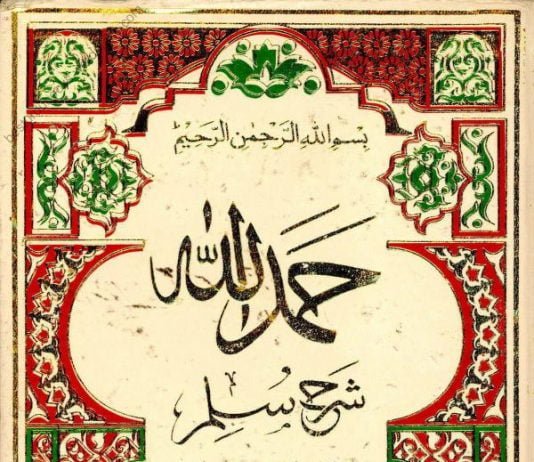 بسم الله الرحمن الرحيم
حمد الله
شرح سلم